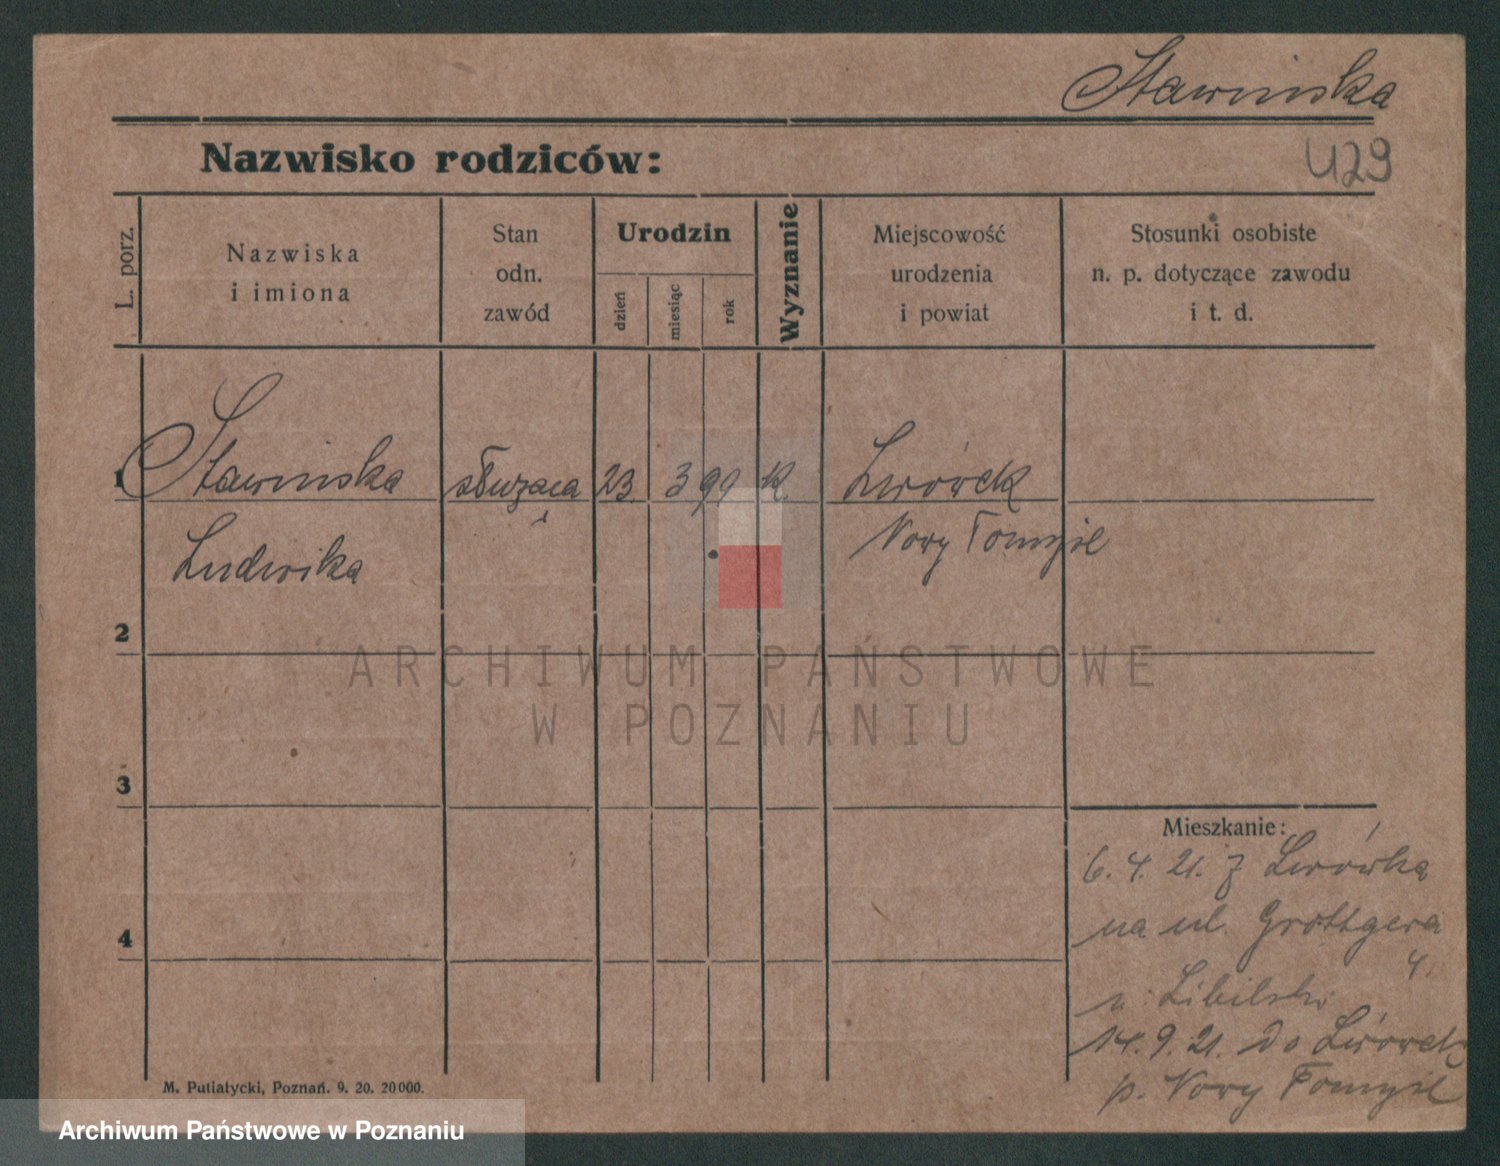 Stawińska
Nazwisko rodziców:
U29
L. porz.
Nazwiska
i imiona
Stan
odn.
zawód
Urodzin
dzień
miesiąc
rok
Wyznanie
Miejscowość
urodzenia
i powiat
Stosunki osobiste
n. p. dotyczące zawodu
i t. d.
1 Stawińska służąca 23. 3 99 k. Lwówek
Ludwika Nowy Tomyśl
2
ARCHIWUM PAŃSTWOWE
W POZNANIU
3
Mieszkanie:
6. 4. 21. z Lwówka
na ul. Grottgera
4.
4
u
14. 9. 21. do Lwówek
p. Nowy Tomyśl
M. Putiatycki, Poznań. 9. 20. 20000.
Archiwum Państwowe w Poznaniu